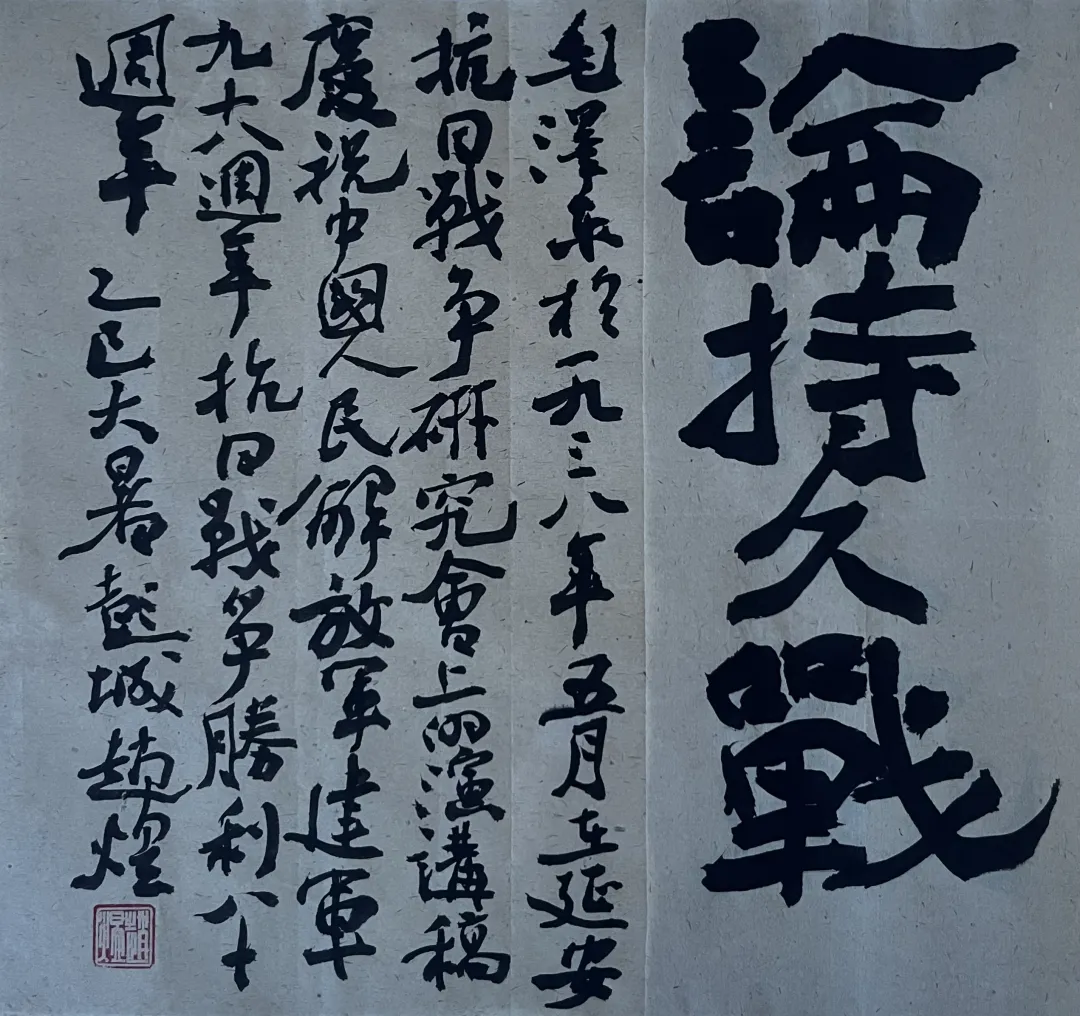 論持久戰
毛澤東於一九三八年五月在延安
抗日戰争研究會上的演講稿
慶祝中國人民解放軍建軍
九十八週年抗日戰爭勝利八十
週年 乙巳大暑城趙